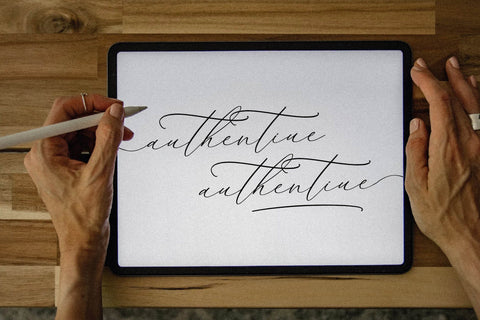 authentique
authentique